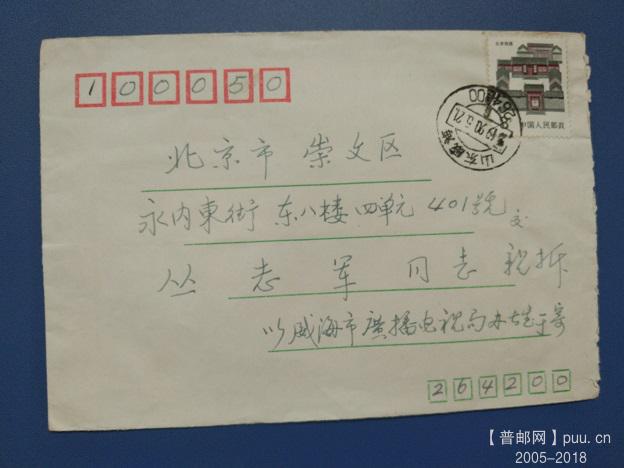 100050
北京民居
中国人民邮政
山东威海
264200
北京市 崇文区
永内東街 东八楼 四单元 401號 交
丛 志 军 同志 親拆
威海市廣播电視局办
264200
【普邮网】puu.cn
2005-2018